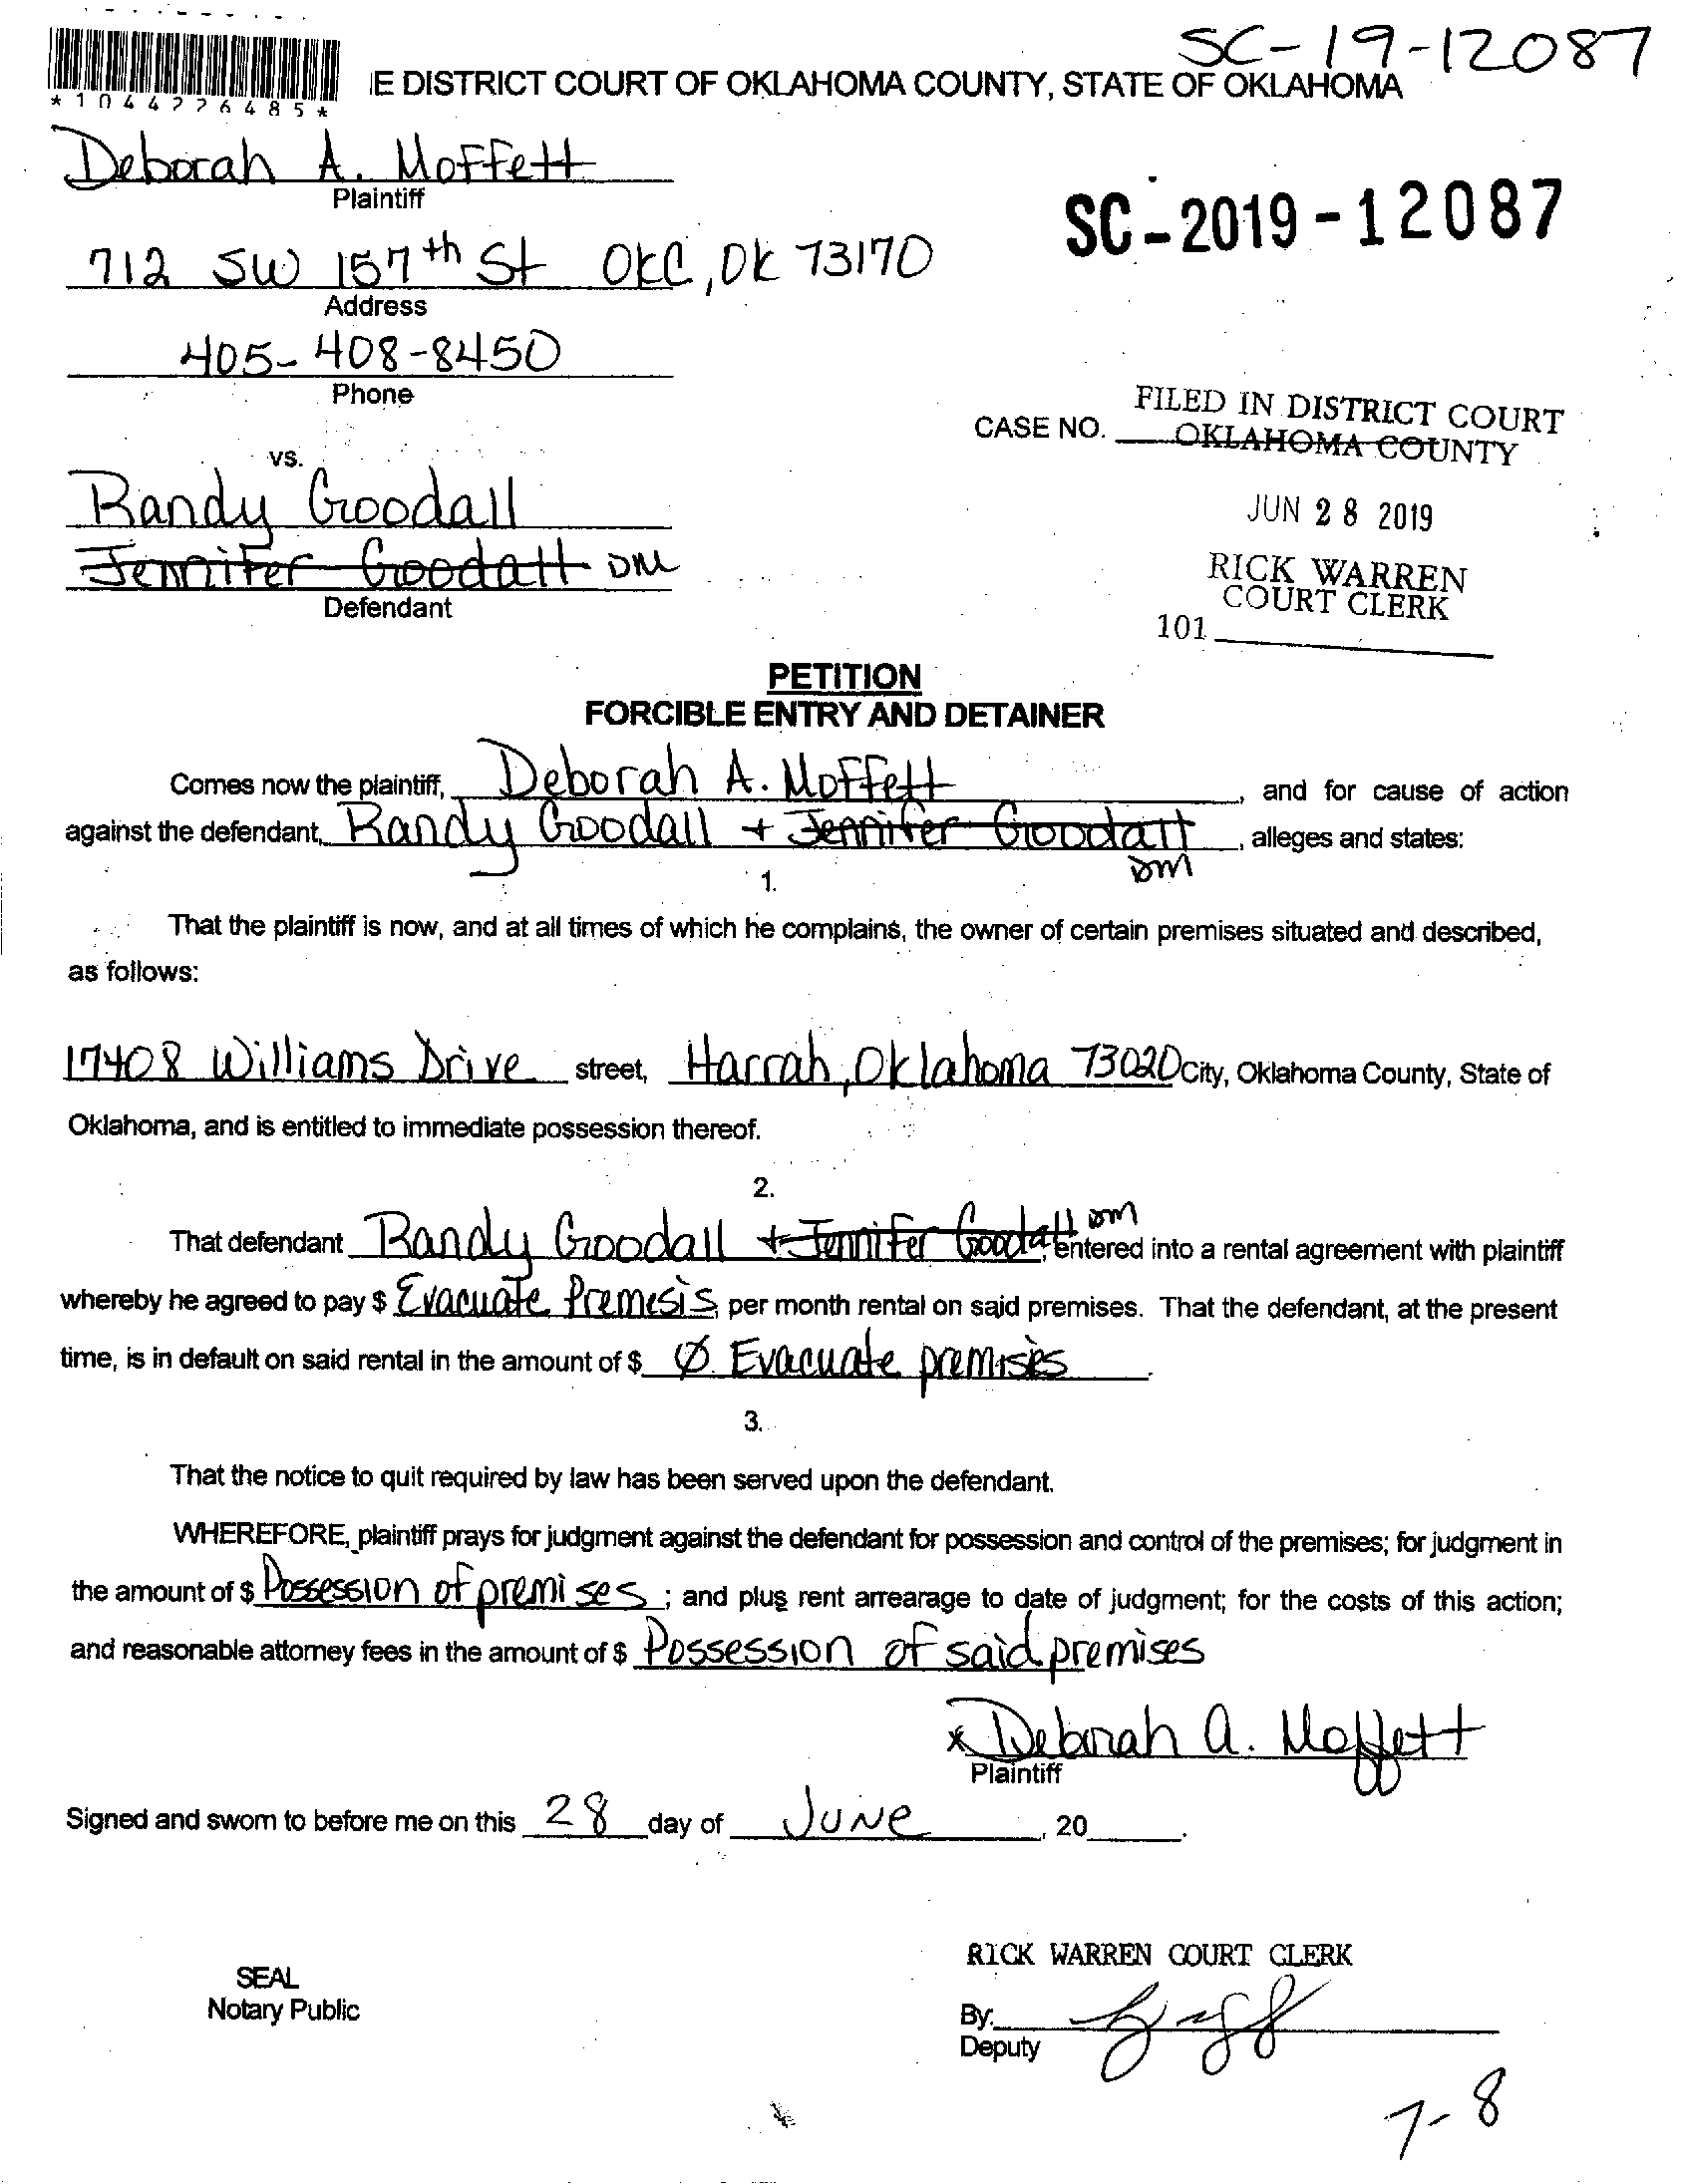 SC-19-12087
E DISTRICT COURT OF OKLAHOMA COUNTY, STATE OF OKLAHOMA
*1044226485*
Deborah A. Moffett
Plaintiff
SC-2019-12087
712 SW 157th St OKC, OK 73170
Address
405-408-8450
Phone
FILED IN DISTRICT COURT
CASE NO. OKLAHOMA COUNTY
vs.
Randy Goodall
JUN 28 2019
Jennifer Goodall DM
RICK WARREN
COURT CLERK
Defendant
101
PETITION
FORCIBLE ENTRY AND DETAINER
Comes now the plaintiff, Deborah A. Moffett, and for cause of action
against the defendant, Randy Goodall + Jennifer Goodall, alleges and states:
DM
1.
That the plaintiff is now, and at all times of which he complains, the owner of certain premises situated and described,
as follows:
17408 Williams Drive street, Harrah, Oklahoma 73020 City, Oklahoma County, State of
Oklahoma, and is entitled to immediate possession thereof.
2.
That defendant Randy Goodall + Jennifer Goodall DM, entered into a rental agreement with plaintiff
whereby he agreed to pay $ Evacuate Premesis, per month rental on said premises. That the defendant, at the present
time, is in default on said rental in the amount of $ Ø Evacuate premises.
3.
That the notice to quit required by law has been served upon the defendant.
WHEREFORE, plaintiff prays for judgment against the defendant for possession and control of the premises; for judgment in
the amount of $ Possession of premises; and plus rent arrearage to date of judgment; for the costs of this action;
and reasonable attorney fees in the amount of $ Possession of said premises
x Deborah A. Moffett
Plaintiff
Signed and sworn to before me on this 28 day of June, 20 .
RICK WARREN COURT CLERK
SEAL
Notary Public
By:
Deputy
7-8